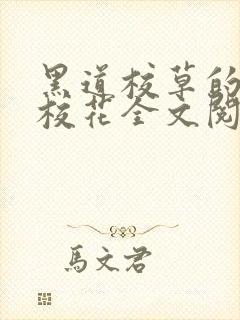 黑道校草的
校花全文閱
馬文君